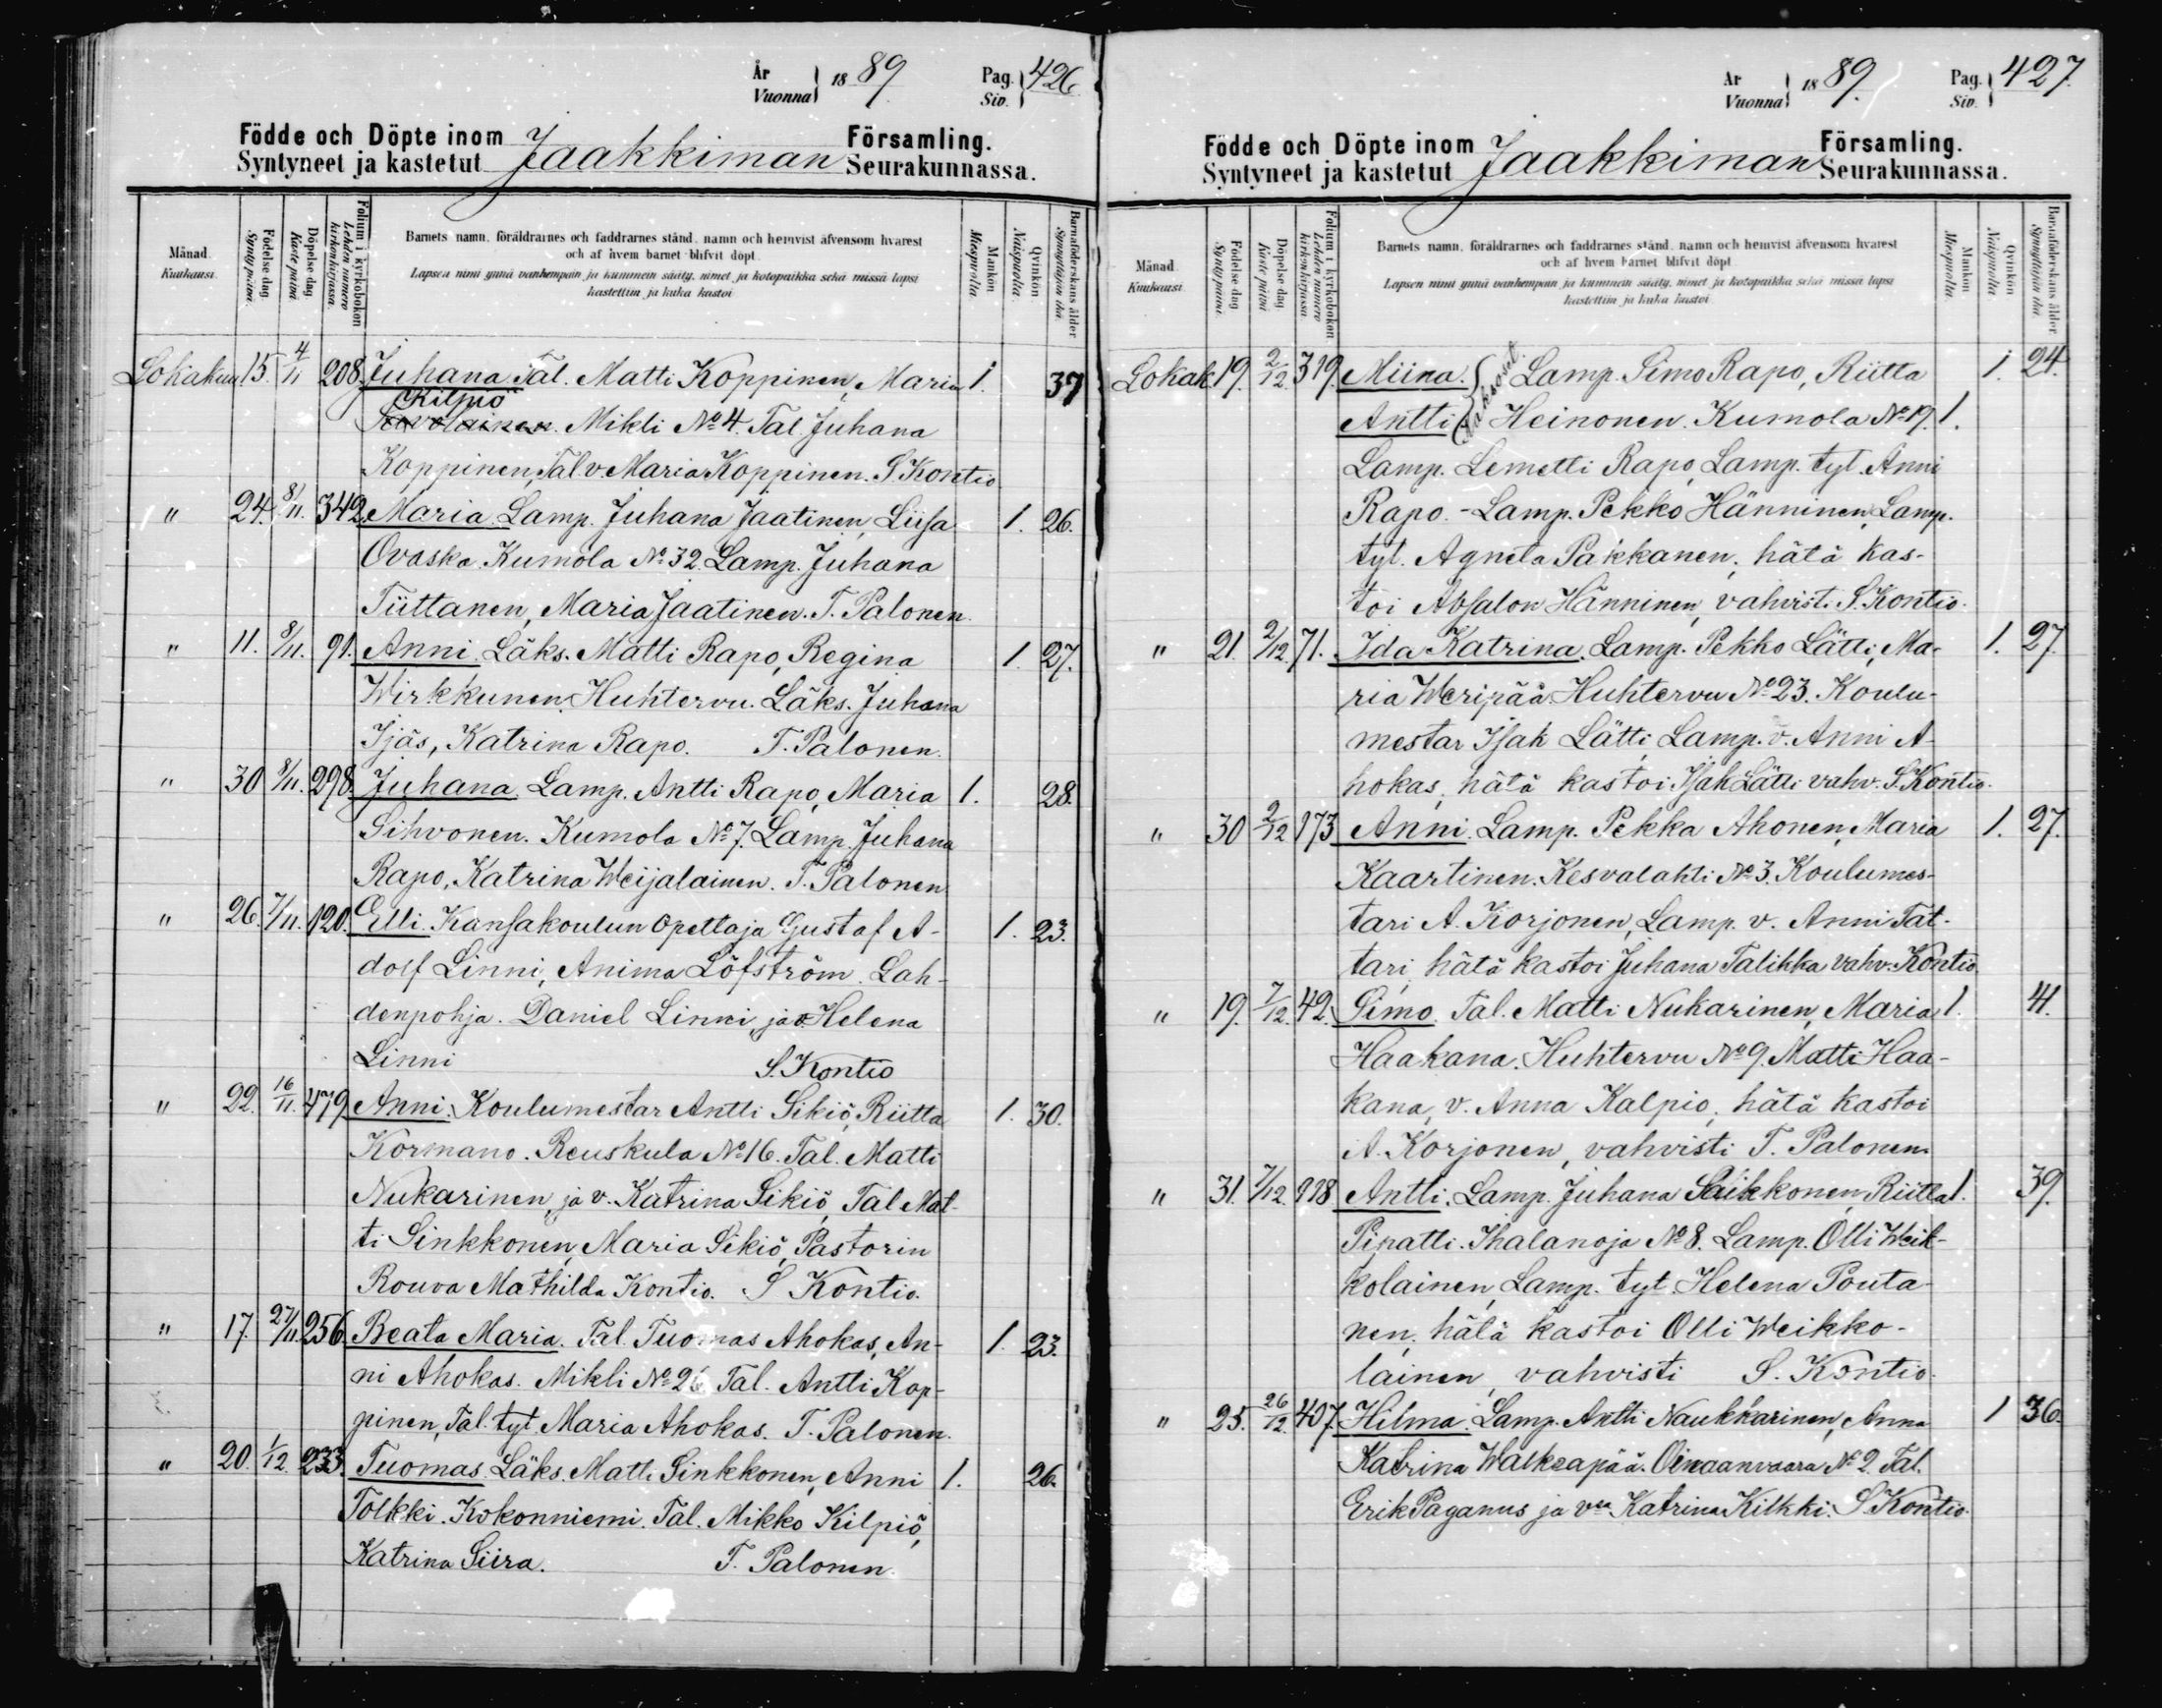 År Vuonna 1889 Pag. Siv. 426
Födde och Döpte inom Jaakkiman Församling.
Syntyneet ja kastetut Seurakunnassa.
Månad. Kuukausi.
Födelse dag. Synty päivä.
Döpelse dag Kaste päivä.
Folium i kyrkobokon Lehden numero kirkonkirjassa.
Barnets namn, föräldrarnes och faddrarnes stånd, namn och hemvist äfvensom hvarest
och af hvem barnet blifvit döpt.
Lapsen nimi ynnä vanhempain ja kummein sääty, nimet ja kotopaikka sekä missä lapsi
kastettiin ja kuka kastoi
Mankön Miespuolta
Qvinkön Naispuolta.
Barnaföderskans ålder Synnyttäjän ikä.
Lokakuu 15. 4/11 208. Juhana Tal. Matti Koppinen, Maria 1. 37
Kilpiö
Savolainen. Mikli No 4. Tal. Juhana
Koppinen, Tal. v. Maria Koppinen. S. Kontio
" 24. 8/11. 342. Maria. Lamp. Juhana Jaatinen, Liisa 1. 26.
Ovaska. Kumola No 32. Lamp. Juhana
Tiittanen, Maria Jaatinen. T. Palonen.
" 11. 8/11. 91. Anni. Läks. Matti Rapo, Regina 1. 27.
Wirkkunen. Huhtervu. Läks. Juhana
Ijäs, Katrina Rapo. T. Palonen.
" 30 8/11. 298. Juhana. Lamp. Antti Rapo, Maria 1. 28.
Sihvonen. Kumola No 7. Lamp. Juhana
Rapo, Katrina Weijalainen. T. Palonen.
" 26. 7/11. 120. Elli. Kansakoulun Opettaja Gustaf A-
dolf Linni, Anima Löfström. Lah- 1. 23.
denpohja. Daniel Linni, ja Helena
Linni S. Kontio
" 22. 16/11. 479 Anni. Koulumestar Antti Sikiö, Riitta 1. 30.
Kormano. Reuskula No 16. Tal. Matti
Nukarinen, ja v. Katrina Sikiö, Tal Mat-
ti Sinkkonen, Maria Sikiö, Pastorin
Rouva Mathilda Kontio. S Kontio.
" 17. 27/11. 256 Beata Maria. Tal. Tuomas Ahokas, An- 1. 23.
ni Ahokas. Mikli No 26 Tal. Antti Kop-
pinen, Tal. tyt Maria Ahokas. T. Palonen.
" 20. 1/12. 233. Tuomas. Läks. Matti Sinkkonen, Anni 1. 26.
Tolkki. Kokonniemi. Tal. Mikko Kilpiö,
Katrina Siira. T. Palonen.
År Vuonna 1889. Pag. Siv. 427.
Födde och Döpte inom Jaakkiman Församling.
Syntyneet ja kastetut Seurakunnassa.
Månad. Kuukausi.
Födelse dag Synty päivä.
Döpelse dag Kaste päivä
Folium i kyrkobokon Lehden numero kirkonkirjassa
Barnets namn, föräldrarnes och faddrarnes stånd, namn och hemvist äfvensom hvarest
och af hvem barnet blifvit döpt
Lapsen nimi ynnä vanhempain ja kummein sääty, nimet ja kotopaikka sekä missä lapsi
kastettiin ja kuka kastoi
Mankön Miespuolta.
Qvinkön Naispuolta
Barnaföderskans ålder Synnyttäjän ikä.
Lokak. 19. 2/12 319. Miina. Lamp. Simo Rapo, Riitta 1. 24.
Antti Heinonen. Kumola No 19. 1.
Lamp. Lemetti Rapo, Lamp. tyt. Anni
Rapo. - Lamp. Pekko Hänninen, Lamp.
tyt. Agneta Pakkanen, hätä kas-
toi Absalon Hänninen, vahvisti S. Kontio.
" 21. 2/12. 71. Ida Katrina. Lamp. Pekko Lätti, Ma- 1. 27.
ria Weripää. Huhtervu No 23. Koulu-
mestar Isak Lätti, Lamp. v. Anni A-
hokas, hätä kastoi Isak Lätti vahv. S. Kontio.
" 30 2/12 173 Anni. Lamp. Pekka Ahonen, Maria 1. 27.
Kaartinen. Kesvalahti No 3. Koulumes-
tari A. Korjonen, Lamp. v. Anni Tat-
tari, hätä kastoi Juhana Talikka vahv. Kontio.
" 19. 7/12. 42. Simo. Tal. Matti Nukarinen, Maria 1. 41.
Haakana. Huhtervu No 9. Matti Haa-
kana, v. Anna Kalpio, hätä kastoi
A. Korjonen, vahvisti T. Palonen
" 31. 7/12. Antti. Lamp. Juhana Säikkonen, Riitta 1. 39.
Pipatti. Ihalanoja No 8. Lamp. Olli Weik-
kolainen, Lamp. tyt Helena Pouta-
nen, hätä kastoi Olli Weikko-
lainen, vahvisti S. Kontio.
" 25. 26/12. 407. Hilma. Lamp. Antti Naukkarinen, Anna 1 36.
Katrina Walkeapää. Oinaanvaara No 2. Tal.
Erik Paganus ja v:a Katrina Kilkki. S. Kontio.